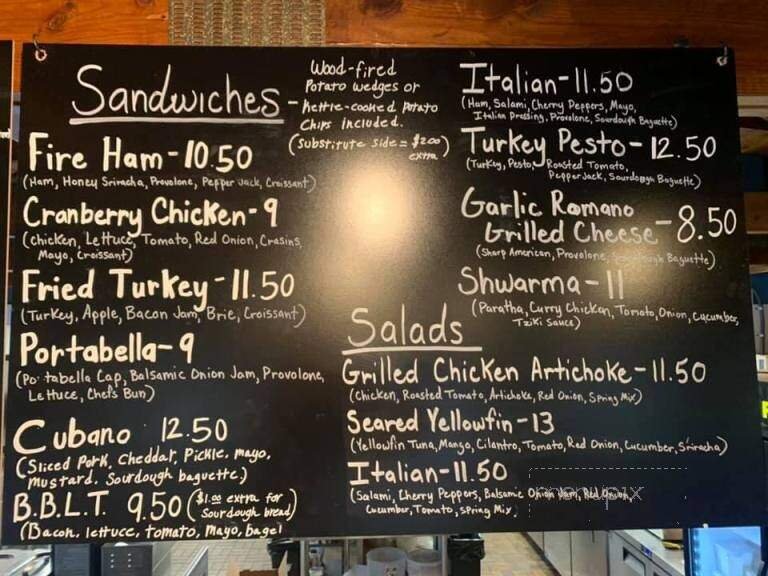 Sandwiches - Wood-fired
Potato wedges or
kettle-cooked potato
Chips included.
(Substitute side = $2.00
extra)
Fire Ham - 10.50
(Ham, Honey Sriracha, Provolone, Pepper Jack, Croissant)
Cranberry Chicken - 9
(Chicken, Lettuce, Tomato, Red Onion, Crasins,
Mayo, Croissant)
Fried Turkey - 11.50
(Turkey, Apple, Bacon Jam, Brie, Croissant)
Portabella - 9
(Portabella Cap, Balsamic Onion Jam, Provolone,
Lettuce, Chefs Bun)
Cubano 12.50
(Sliced Pork, Cheddar, Pickle, mayo,
mustard, Sourdough baguette)
B.B.L.T. 9.50 ($1.00 extra for
Sourdough bread)
(Bacon, lettuce, tomato, mayo, bagel
Italian - 11.50
(Ham, Salami, Cherry Peppers, Mayo,
Italian Dressing, Provolone, Sourdough Baguette)
Turkey Pesto - 12.50
(Turkey, Pesto, Roasted Tomato,
Pepper Jack, Sourdough Baguette)
Garlic Romano
Grilled Cheese - 8.50
(Sharp American, Provolone, Sourdough Baguette)
Shwarma - 11
(Paratha, Curry Chicken, Tomato, Onion, Cucumber,
Tziki Sauce)
Salads
Grilled Chicken Artichoke - 11.50
(Chicken, Roasted Tomato, Artichoke, Red Onion, Spring Mix)
Seared Yellowfin - 13
(Yellowfin Tuna, Mango, Cilantro, Tomato, Red Onion, Cucumber, Sriracha)
Italian - 11.50
(Salami, Cherry Peppers, Balsamic Onion Jam, Red Onion,
Cucumber, Tomato, Spring Mix)
menupix